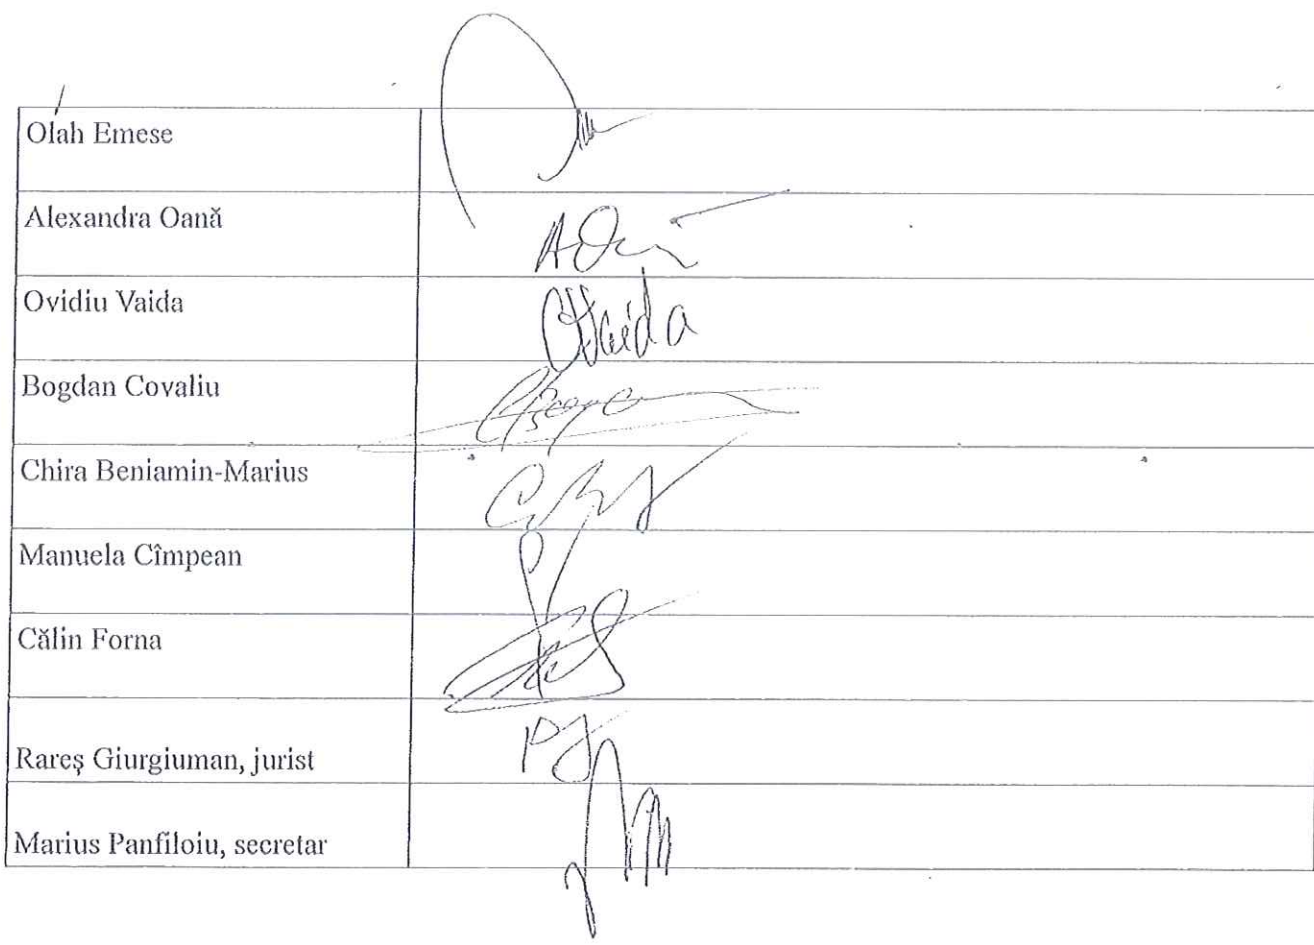 Olah Emese
Alexandra Oană
Ovidiu Vaida
OVaida
Bogdan Covaliu
Chira Beniamin-Marius
Manuela Cîmpean
Călin Forna
Rareș Giurgiuman, jurist
Marius Panfiloiu, secretar